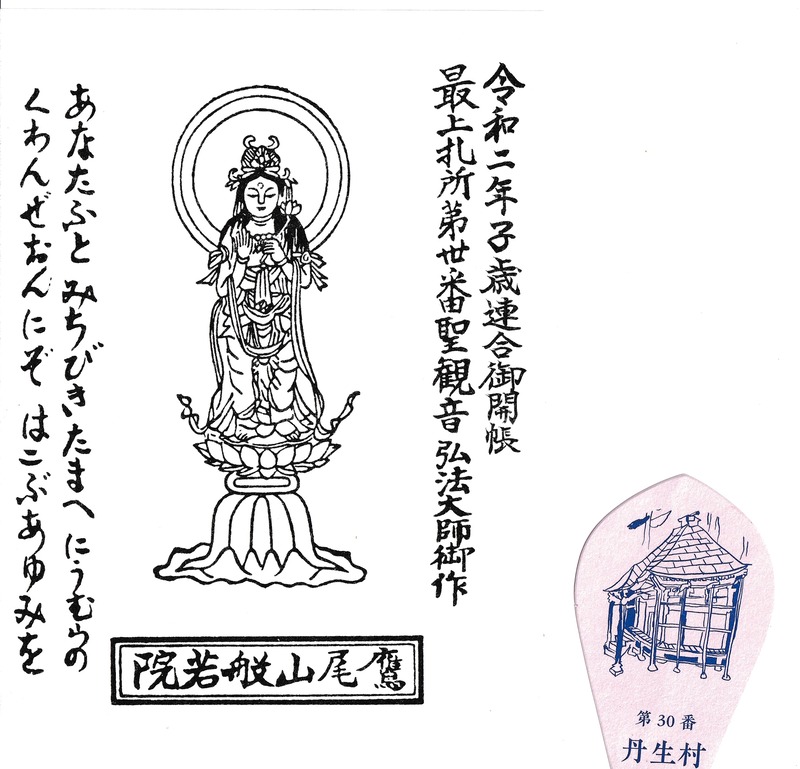 令和二年子歳連合御開帳
最上札所第卅番聖観音 弘法大師御作
あなたふと みちびきたまへ にうむらの
くわんぜおんにぞ はこぶあゆみを
鷹尾山般若院
第30番
丹生村